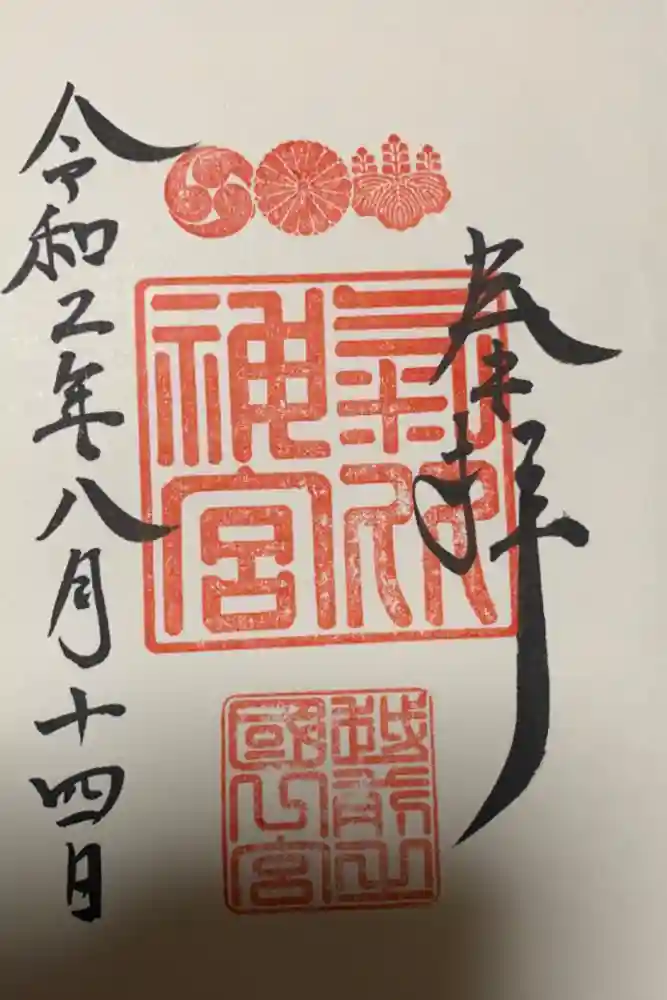 奉拝
氣比
神宮
越前之
國一宮
令和二年八月十四日